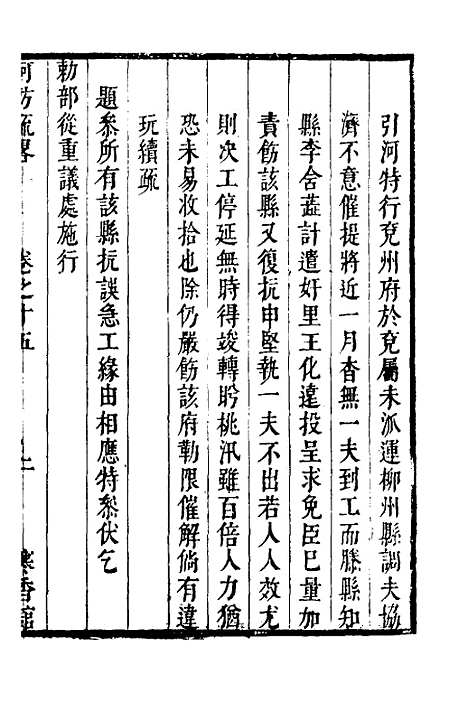 引河特行兖州府於兖属未派運柳州縣調夫協
濟不意催提將近一月杳無一夫到工而滕縣知
縣李舍蓝計遣奸里王化遠投呈求免臣已量加
責飭該縣又復抗申堅執一夫不出若人人效尤
則次工停延無時得竣轉盻桃汛雖百倍人力猶
恐未易收拾也除仍嚴飭該府勒限催解倘有違
玩續疏
題叅所有該縣抗誤急工緣由相應特叅伏乞
勅部從重議處施行
河防疏畧 卷之十五